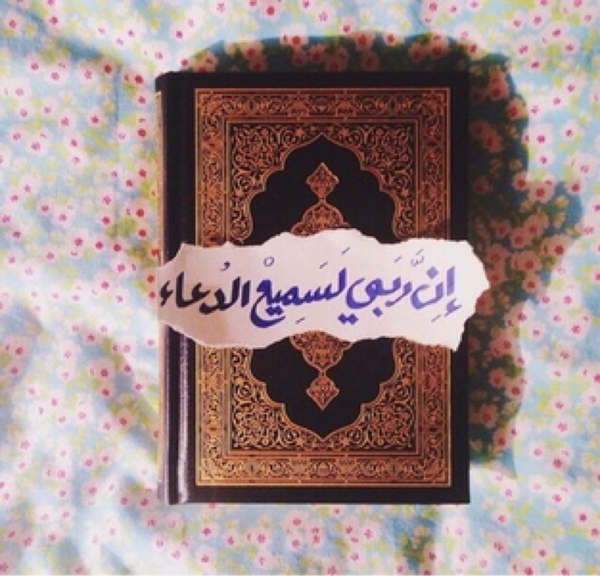 إِنَّ رَبي لَسَمِيعْ الدُعاء